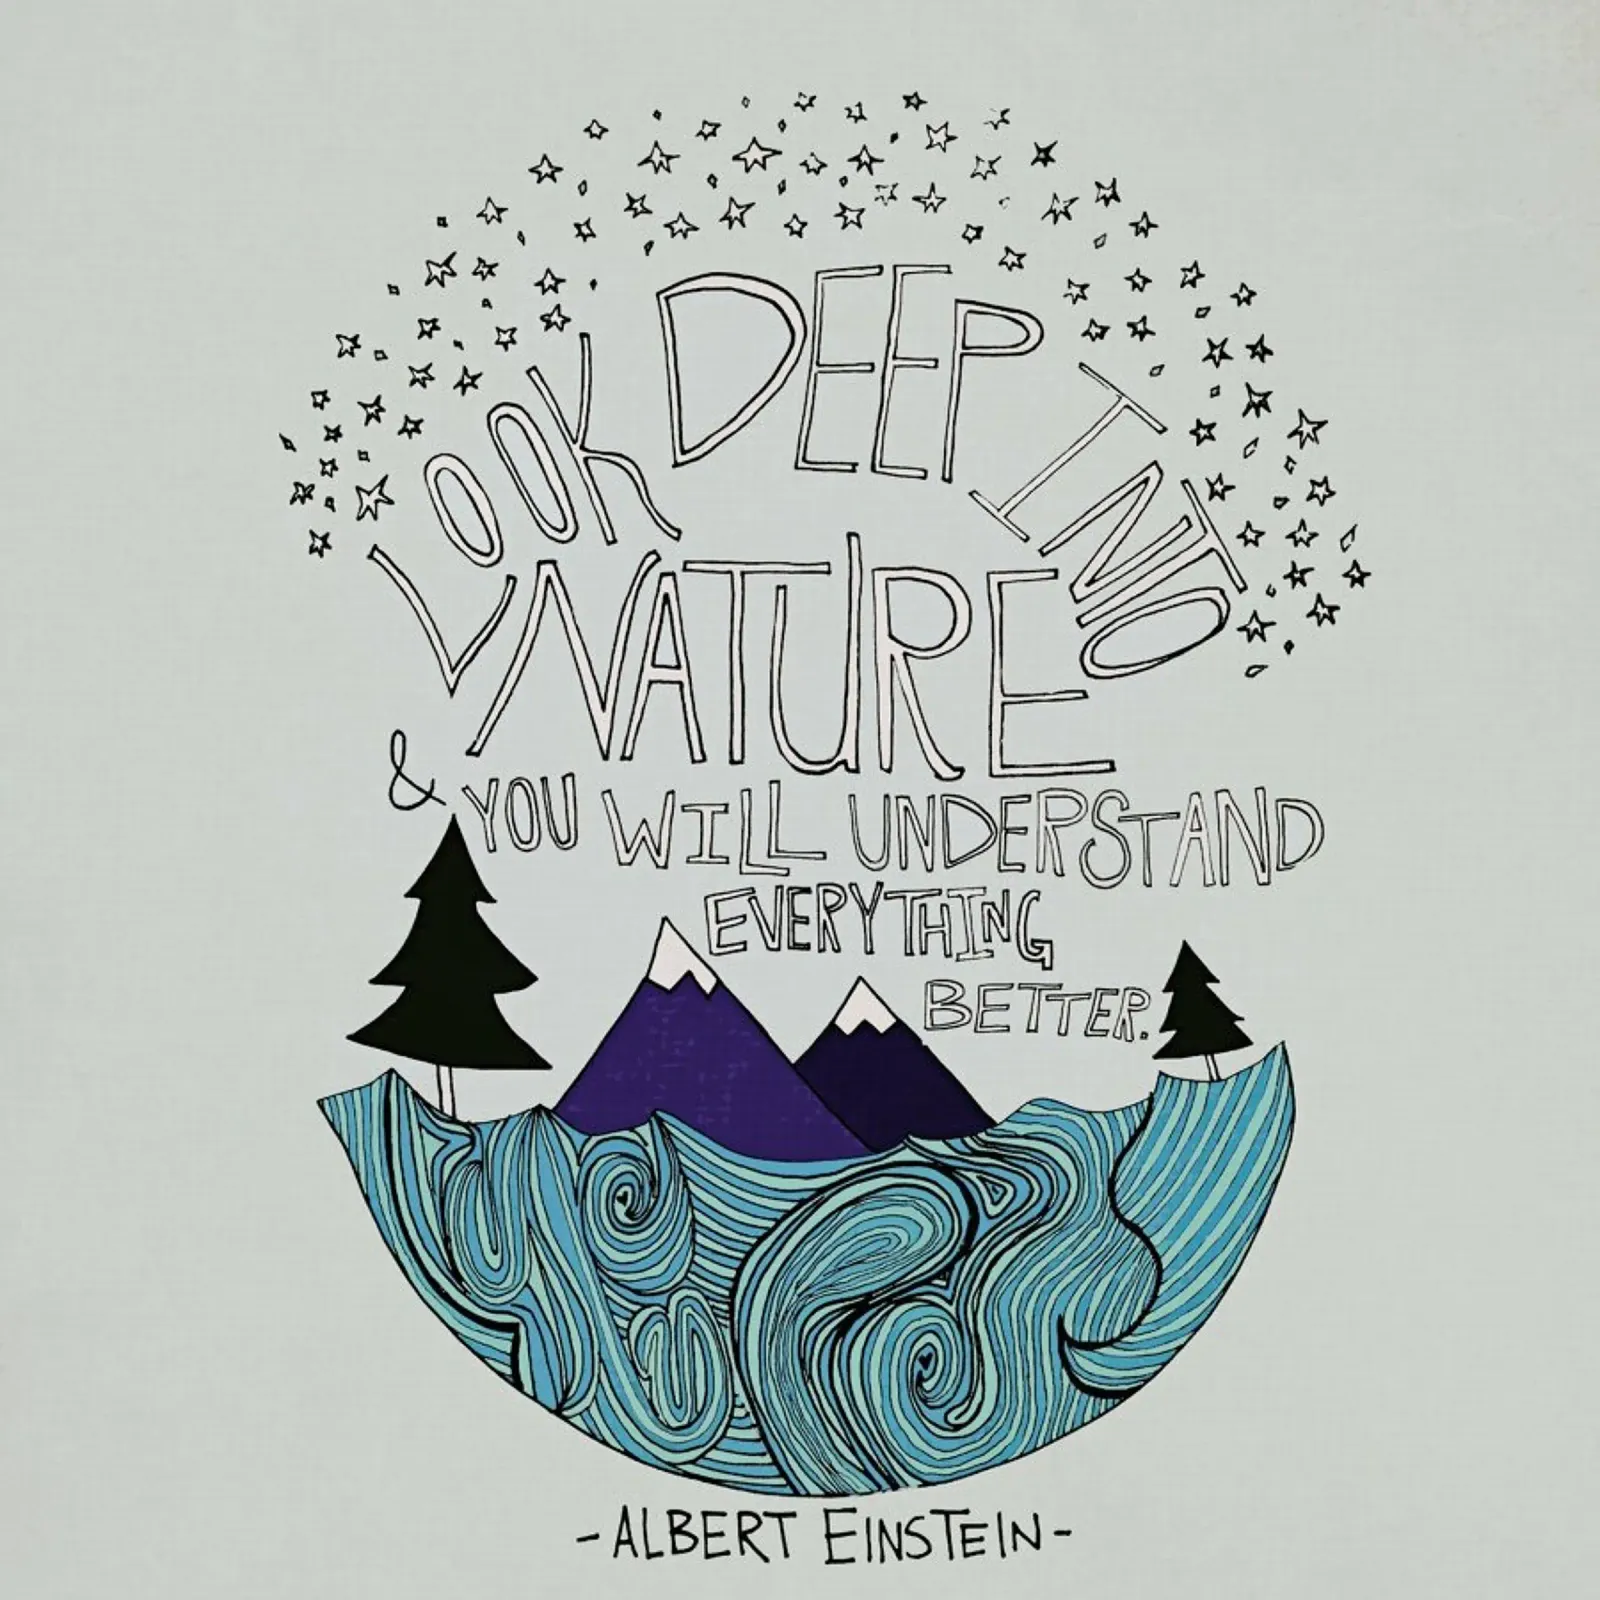 LOOK DEEP INTO
NATURE
& YOU WILL UNDERSTAND
EVERYTHING
BETTER.
-ALBERT EINSTEIN-